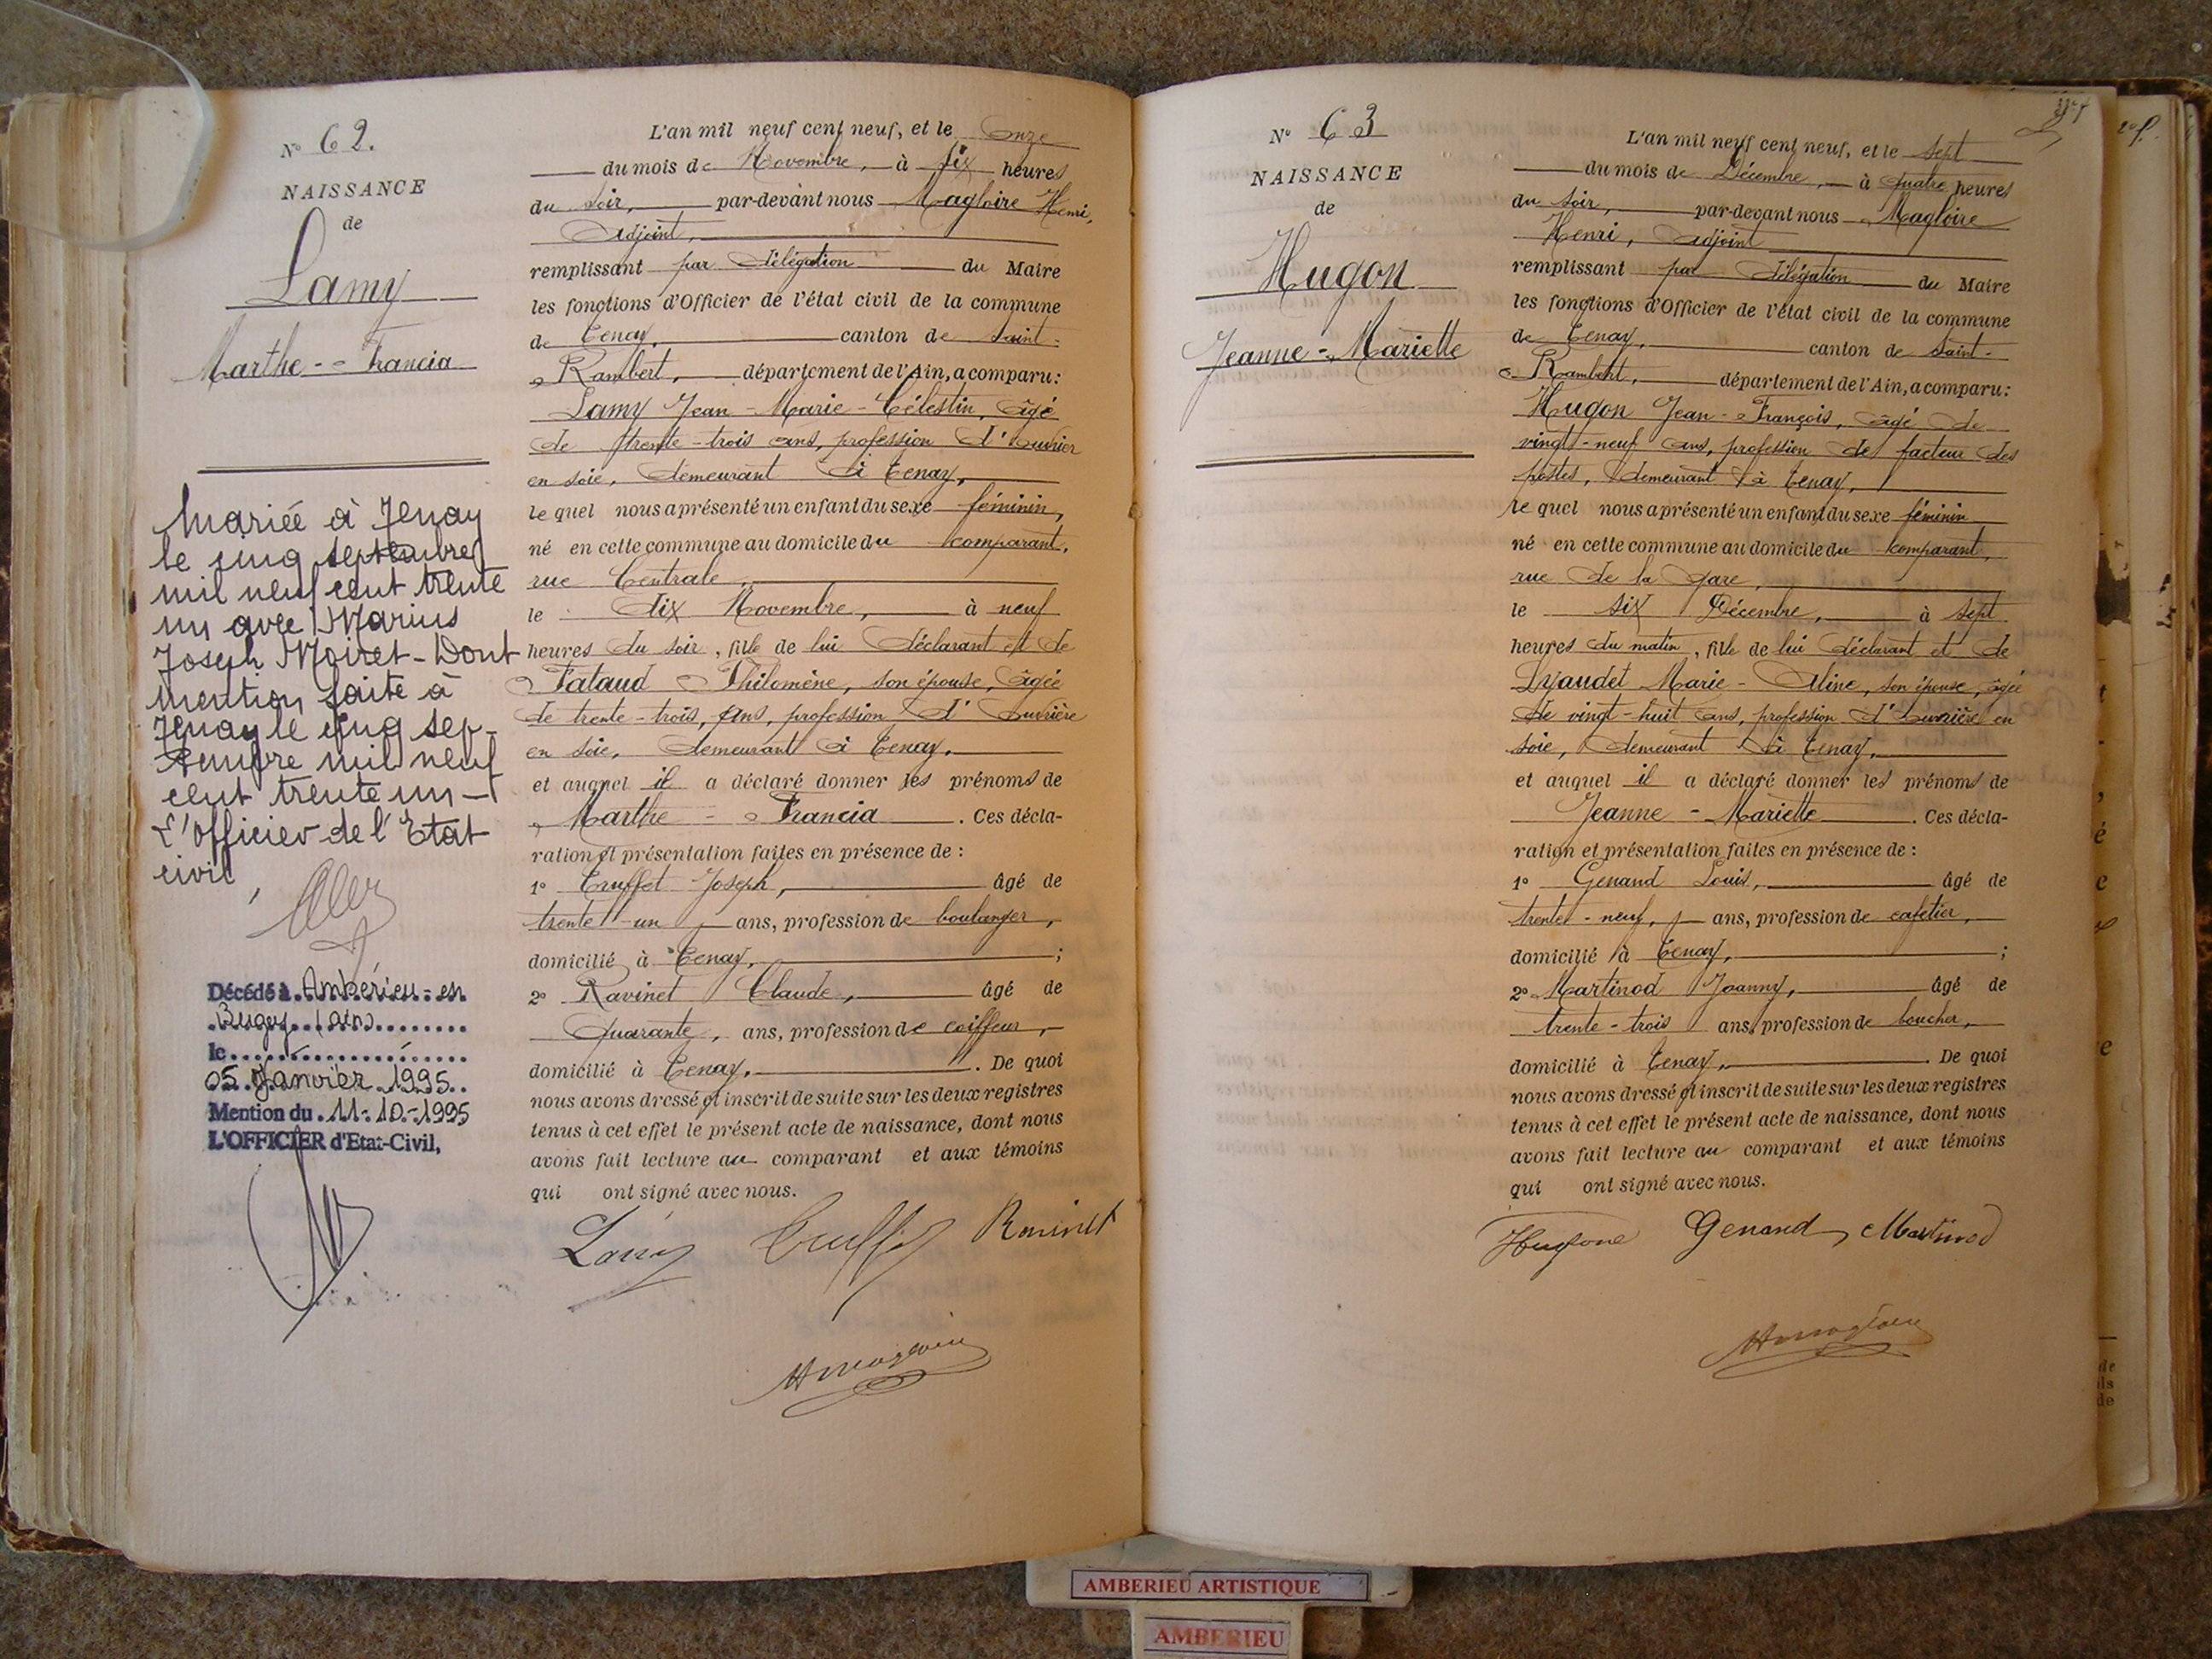 N° 62.
NAISSANCE
de
Lamy
Marthe - Francia
Mariée à Tenay
le cinq septembre
mil neuf cent trente
un avec Marius
Joseph Moiret - Dont
mention faite à
Tenay le cinq sep-
tembre mil neuf
cent trente un -
L'officier de l'Etat
civil,
Décédé à Ambérieu-en
Bugey (ain)
le
05 Janvier 1995
Mention du 11-10-1995
L'OFFICIER d'Etat-Civil,
L'an mil neuf cent neuf, et le Onze
du mois de Novembre, à six heures
du soir, par-devant nous Magloire Henri,
Adjoint,
remplissant par délégation du Maire
les fonctions d'Officier de l'état civil de la commune
de Tenay, canton de Saint-
Rambert, département de l'Ain, a comparu:
Lamy Jean-Marie-Célestin, âgé
de trente-trois ans, profession d'ouvrier
en soie, demeurant à Tenay,
le quel nous a présenté un enfant du sexe féminin,
né en cette commune au domicile du comparant,
rue Centrale,
le dix Novembre, à neuf
heures du soir, fille de lui déclarant et de
Pataud Philomène, son épouse, âgée
de trente-trois, ans, profession d'Ouvrière
en soie, demeurant à Tenay,
et auquel il a déclaré donner les prénoms de
Marthe - Francia. Ces décla-
ration et présentation faites en présence de :
1° Truffet Joseph, âgé de
trente-un ans, profession de boulanger,
domicilié à Tenay, ;
2° Ravinet Claude, âgé de
Quarante, ans, profession de coiffeur,
domicilié à Tenay. De quoi
nous avons dressé et inscrit de suite sur les deux registres
tenus à cet effet le présent acte de naissance, dont nous
avons fait lecture au comparant et aux témoins
qui ont signé avec nous.
Lamy Truffet Ravinet
HMagloire
N° 63
NAISSANCE
de
Hugon
Jeanne-Mariette
L'an mil neuf cent neuf, et le sept
du mois de Décembre, à quatre heures
du soir, par-devant nous Magloire
Henri, adjoint
remplissant par délégation du Maire
les fonctions d'Officier de l'état civil de la commune
de Tenay, canton de Saint-
Rambert, département de l'Ain, a comparu:
Hugon Jean-François, âgé de
vingt-neuf ans, profession de facteur des
postes, demeurant à Tenay,
le quel nous a présenté un enfant du sexe féminin
né en cette commune au domicile du comparant,
rue de la gare,
le six Décembre, à sept
heures du matin, fille de lui déclarant et de
Lyaudet Marie-Aline, son épouse, âgée
de vingt-huit ans, profession d'ouvrière en
soie, demeurant à Tenay,
et auquel il a déclaré donner les prénoms de
Jeanne-Mariette. Ces décla-
ration et présentation faites en présence de :
1° Genand Louis, âgé de
trente-neuf, ans, profession de cafetier,
domicilié à Tenay, ;
2° Martinod Joanny, âgé de
trente-trois ans, profession de boucher,
domicilié à Tenay, . De quoi
nous avons dressé et inscrit de suite sur les deux registres
tenus à cet effet le présent acte de naissance, dont nous
avons fait lecture au comparant et aux témoins
qui ont signé avec nous.
Hugon Genand Martinod
HMagloire
AMBERIEU ARTISTIQUE
AMBERIEU